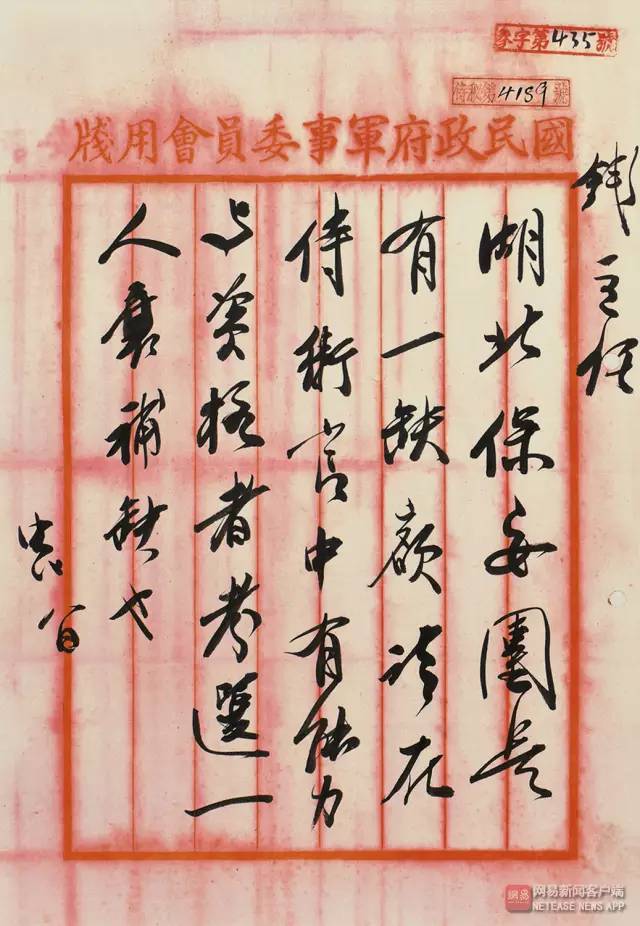 字第435號
侍秘第4189號
國民政府軍事委員會用牋
錢主任
湖北保安團長
有一缺額請在
侍衛官中有能力
与資格者考選一
人補缺也
中正 八日
網易
网易新闻客户端
NETEASE NEWS APP